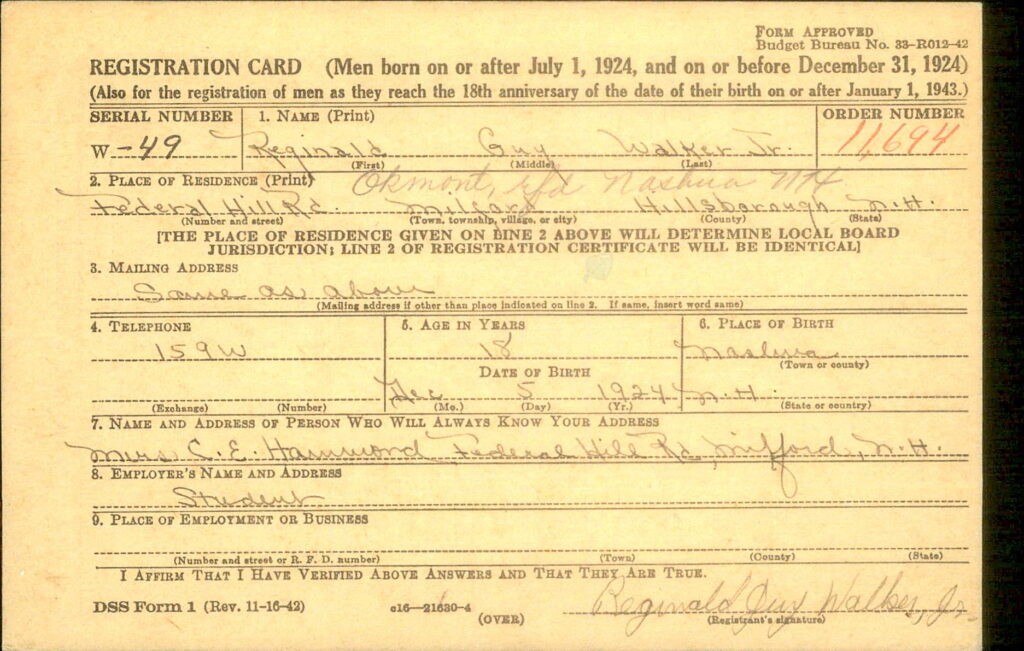 FORM APPROVED
Budget Bureau No. 33-R012-42
REGISTRATION CARD (Men born on or after July 1, 1924, and on or before December 31, 1924)
(Also for the registration of men as they reach the 18th anniversary of the date of their birth on or after January 1, 1943.)
SERIAL NUMBER 1. NAME (Print) ORDER NUMBER
W -49 Reginald Guy Walker Jr. 11,694
(First) (Middle) (Last)
2. PLACE OF RESIDENCE (Print) rfd Nashua NH
Federal Hill Rd. Milford Hillsborough N.H.
(Number and street) (Town, township, village, or city) (County) (State)
[THE PLACE OF RESIDENCE GIVEN ON LINE 2 ABOVE WILL DETERMINE LOCAL BOARD
JURISDICTION; LINE 2 OF REGISTRATION CERTIFICATE WILL BE IDENTICAL]
3. MAILING ADDRESS
Same as above
(Mailing address if other than place indicated on line 2. If same, insert word same)
4. TELEPHONE 5. AGE IN YEARS 6. PLACE OF BIRTH
159W 18 Nashua
(Town or county)
DATE OF BIRTH
Dec 5 1924 N.H.
(Exchange) (Number) (Mo.) (Day) (Yr.) (State or country)
7. NAME AND ADDRESS OF PERSON WHO WILL ALWAYS KNOW YOUR ADDRESS
Mrs C. E. Hammond, Federal Hill Rd, Milford, N.H.
8. EMPLOYER'S NAME AND ADDRESS
Student
9. PLACE OF EMPLOYMENT OR BUSINESS
(Number and street or R. F. D. number) (Town) (County) (State)
I AFFIRM THAT I HAVE VERIFIED ABOVE ANSWERS AND THAT THEY ARE TRUE.
DSS Form 1 (Rev. 11-16-42) c16-21630-4 Reginald Guy Walker, Jr.
(OVER) (Registrant's signature)